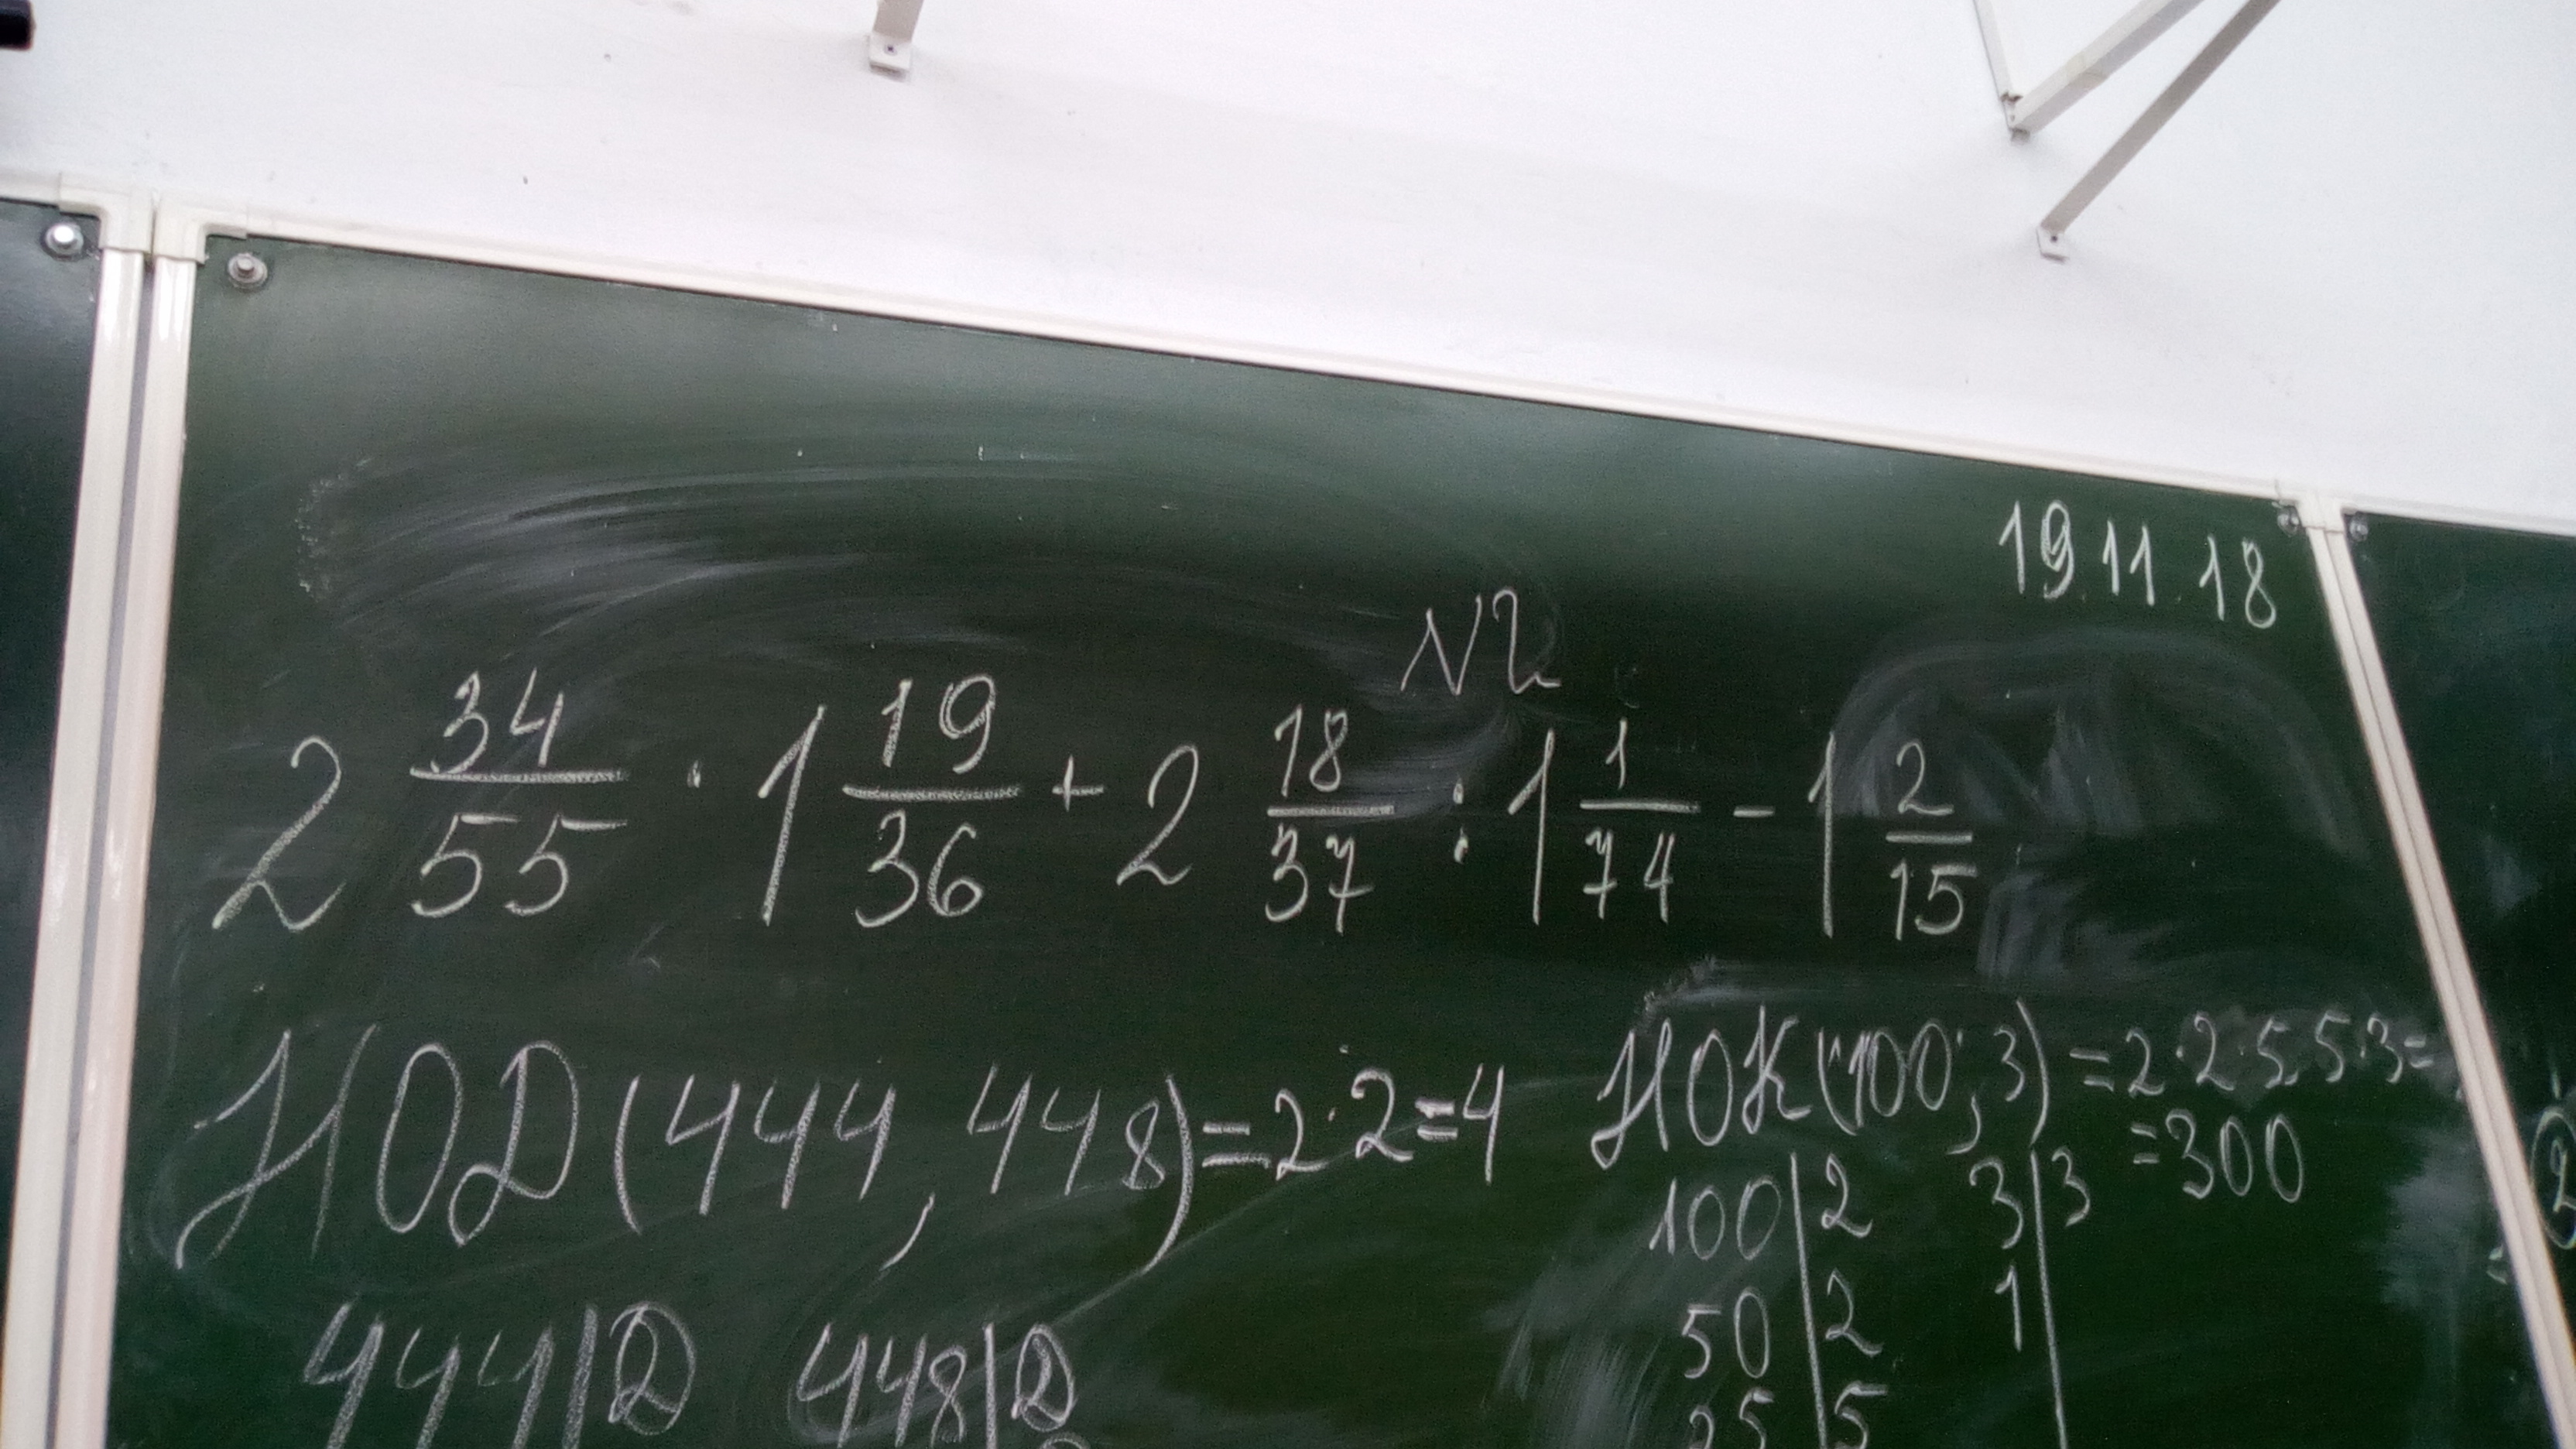 19.11.18
N2
2 34/55 · 1 19/36 + 2 18/37 : 1 1/74 - 1 2/15
НОД(444, 448)=2·2=4
НОК(100; 3) =2·2·5·5·3=
=300
100|2 3|3
50|2 1|
25|5
444|2 448|2